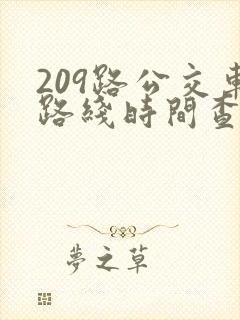 209路公交車
路綫時間查
夢之草